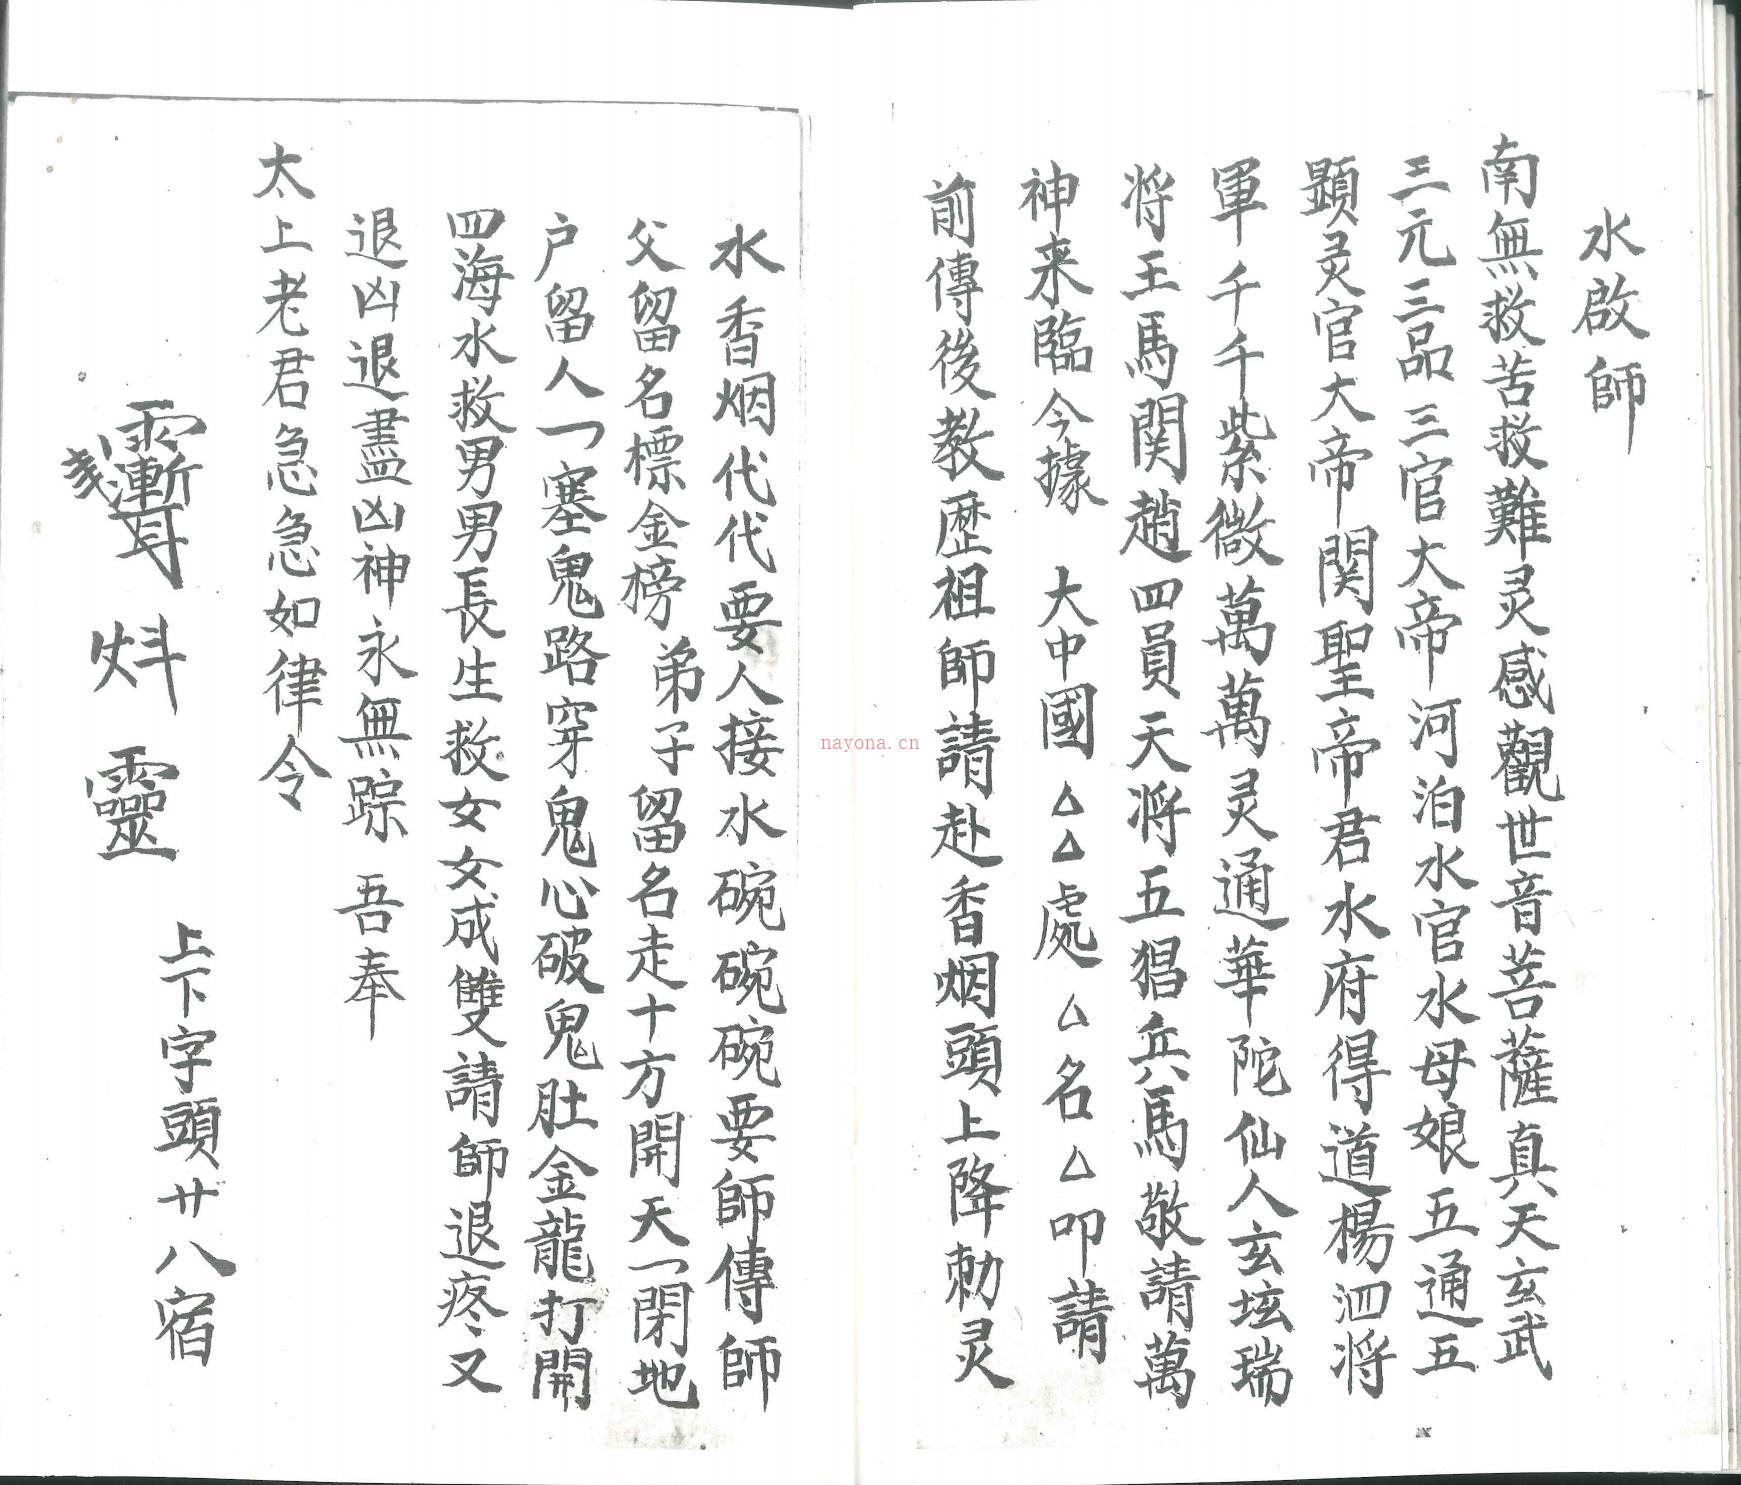 水啟師
南無救苦救難灵感觀世音菩薩真天玄武
三元三品三官大帝河泊水官水母娘五通五
顕灵官大帝関聖帝君水府得道楊泗将
軍千千紫微萬萬灵通華陀仙人玄坛瑞
将王馬関趙四員天将五猖兵馬敬請萬
神来臨今據 大中國△△處△△名△叩請
前傳後教歴祖師請赴香烟頭上降勅灵
水香烟代代要人接水碗碗碗要師傳師
父留名標金榜弟子留名走十方開天一閉地
户留人一塞鬼路穿鬼心破鬼肚金龍打開
四海水救男男長生救女女成雙請師退疼又
退凶退盡凶神永無踪 吾奉
太上老君急急如律令
靈
上下字頭廿八宿
nayona.cn